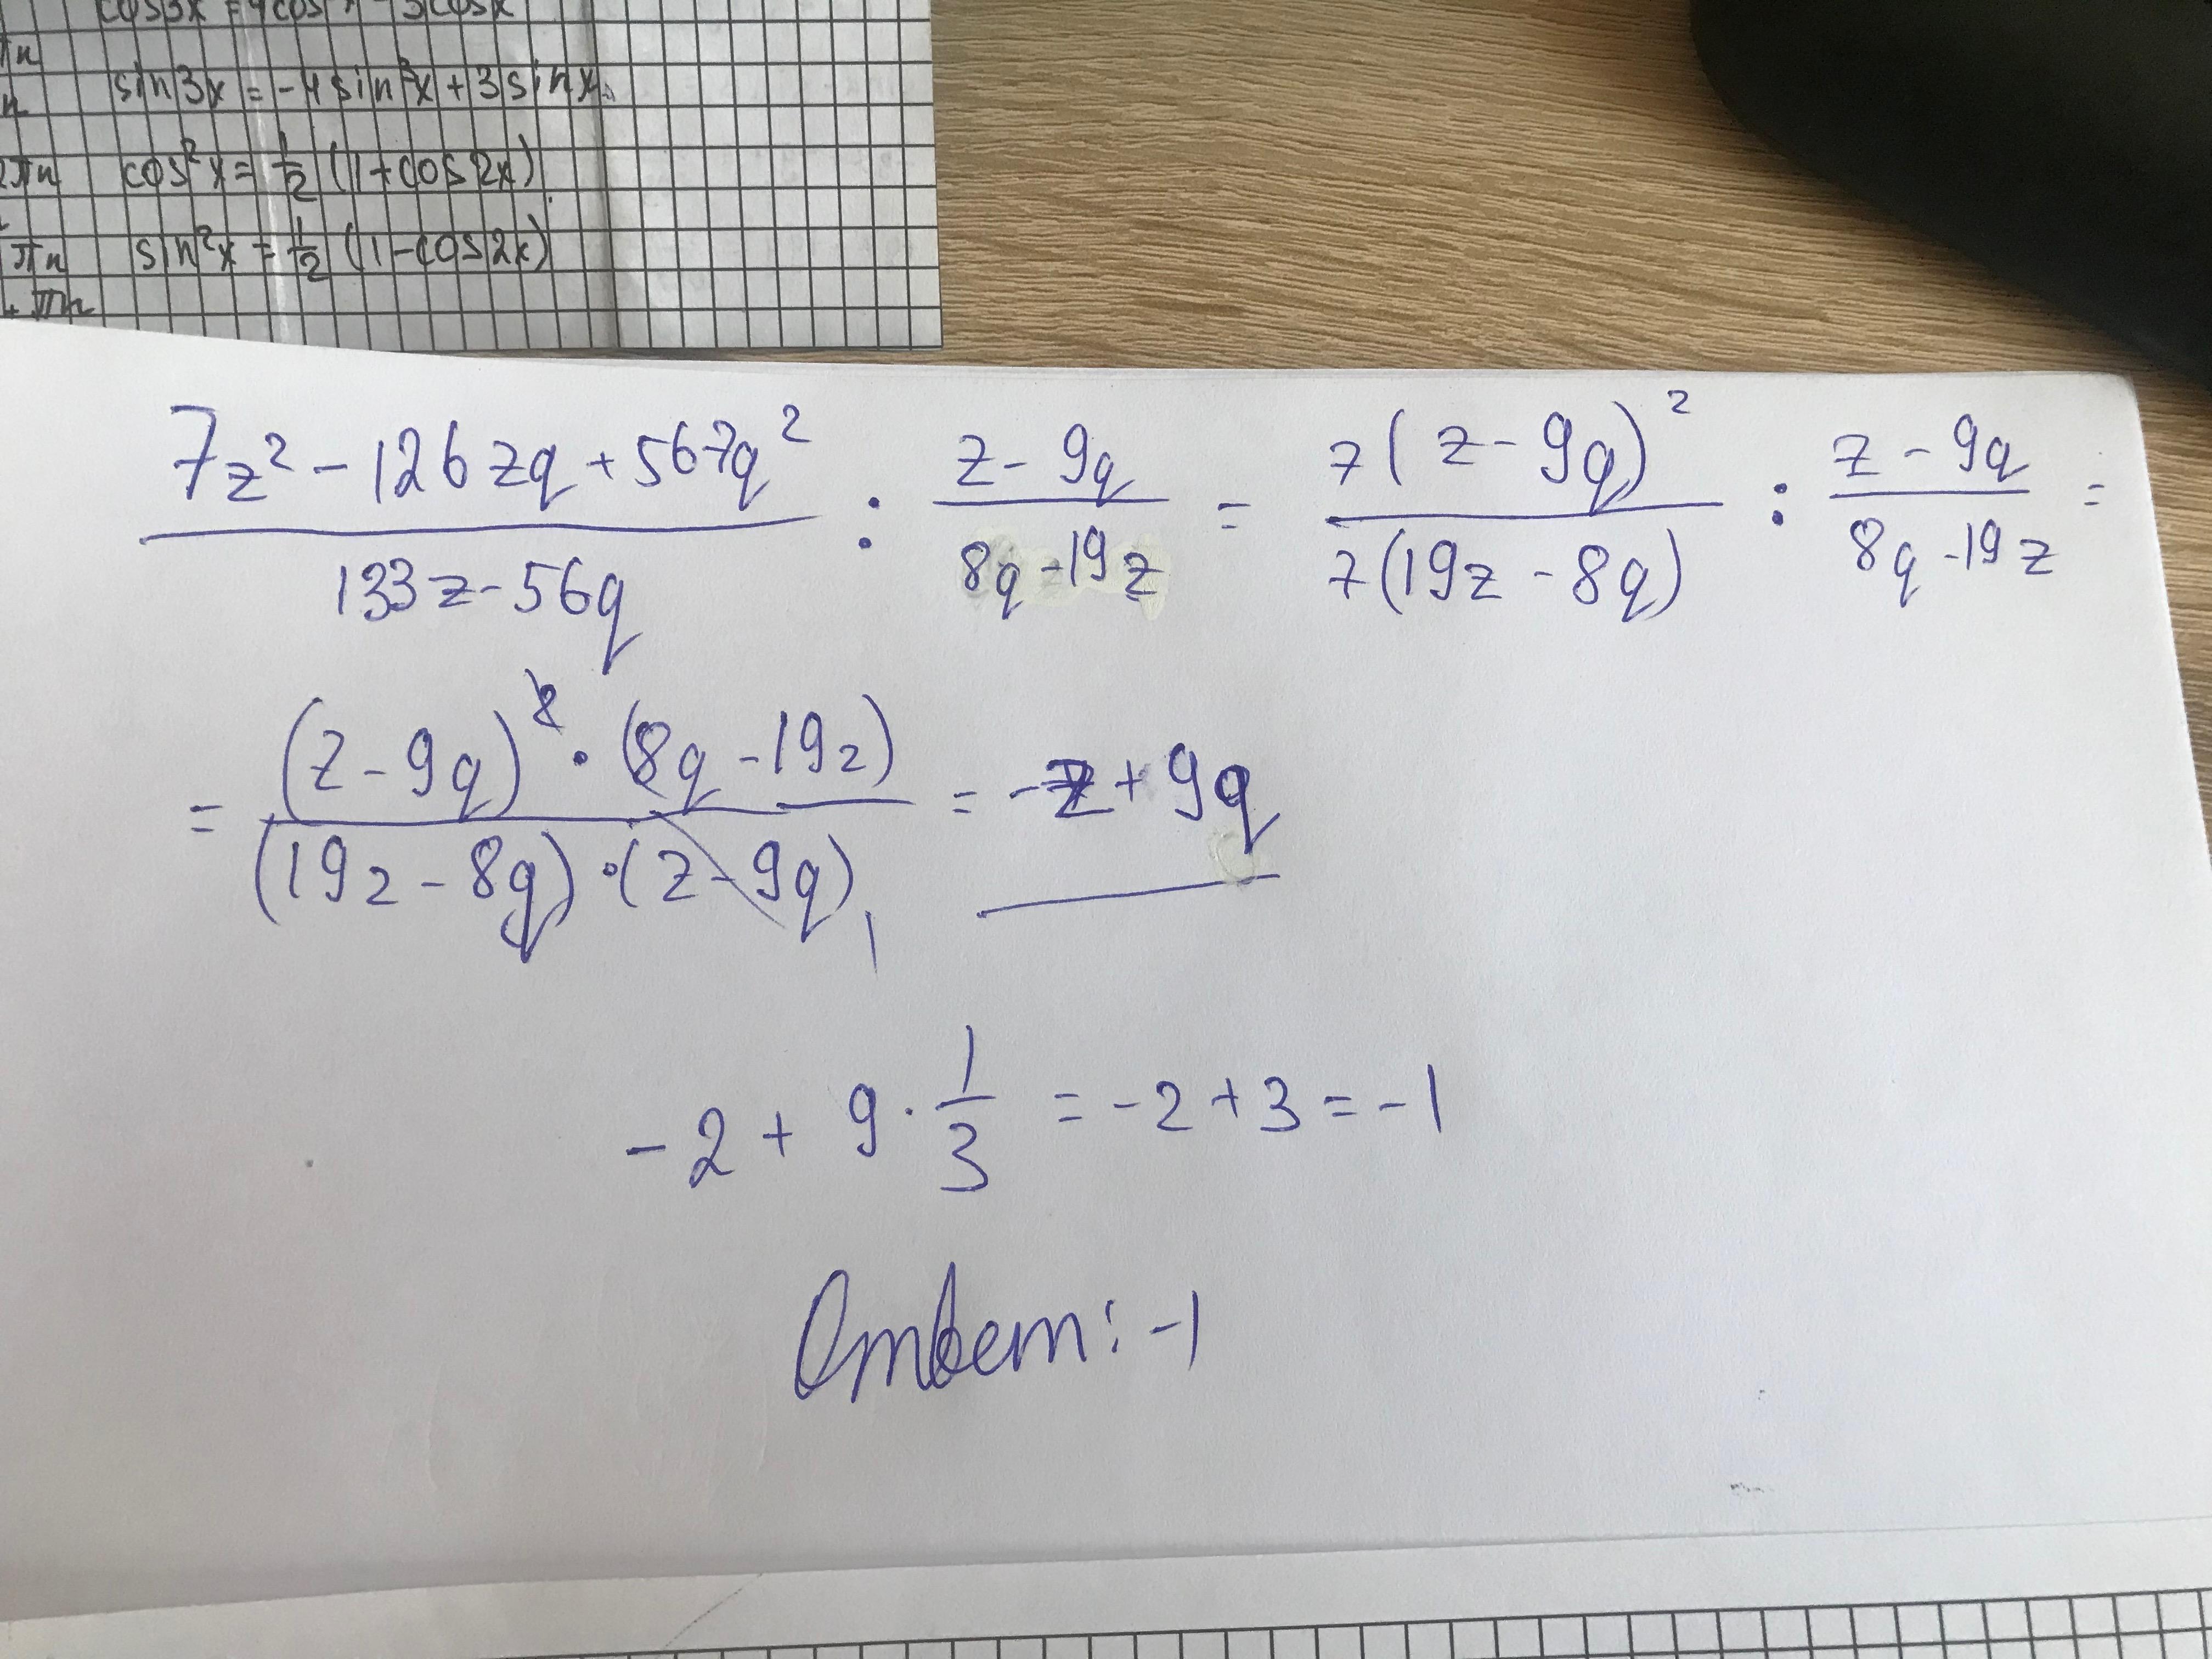 cos3x = 4cos³x - 3cosx
πn
sin3x = -4sin³x + 3sinx
n
2πn cos²x = 1/2 (1+cos2x)
πn sin²x = 1/2 (1-cos2x)
+ πn
(7z² - 126zq + 567q²)/(133z - 56q) : (z - 9q)/(8q - 19z) = 7(z - 9q)²/7(19z - 8q) : (z - 9q)/(8q - 19z) =
= (z - 9q)² · (8q - 19z)/(19z - 8q) · (z - 9q) 1 = -z + 9q
-2 + 9 · 1/3 = -2 + 3 = -1
Ответ: -1